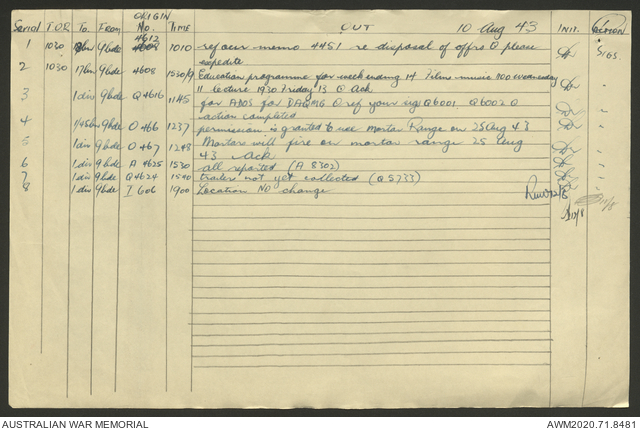 Serial T.O.R. To. From ORIGIN No. TIME OUT 10 Aug 43 INIT. Action
4612
1 1030 9bde 4609 1010 ref our memo 4451 re disposal of offrs Q please Sigs
expedite
2 1030 17bn 9bde 4608 1530/9 Education programme for week ending 14 films music 100 Wednesday
11 lecture 1930 Friday 13 @ Ack
3 1div 9bde Q4616 1145 for ADOS for DAQMG O ref your sig Q6001 Q6002 @
action completed
4 1/45bn 9bde O 466 1237 permission is granted to use Mortar Range on 25 Aug 43
5 1div 9bde O 467 1243 Mortars will fire on mortar range 25 Aug
43 Ack
6 1div 9bde A 4625 1530 all reported (A 8302)
7 1div 9bde Q4624 1540 trailers not yet collected (Q5733)
8 1div 9bde I 606 1900 Location No change
AUSTRALIAN WAR MEMORIAL AWM2020.71.8481